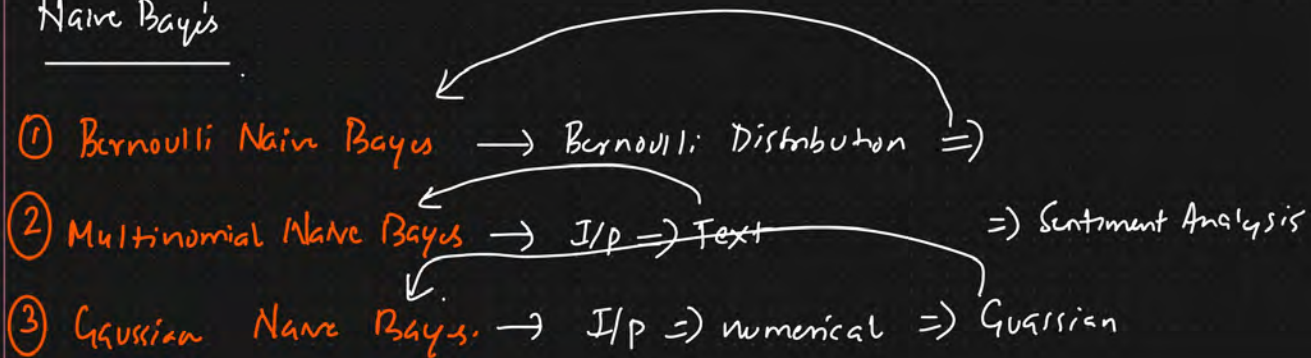 Naive Bayes
① Bernoulli Naive Bayes → Bernoulli Distribution =>
② Multinomial Naive Bayes → I/p => Text => Sentiment Analysis
③ Gaussian Naive Bayes. → I/p => numerical => Guassian